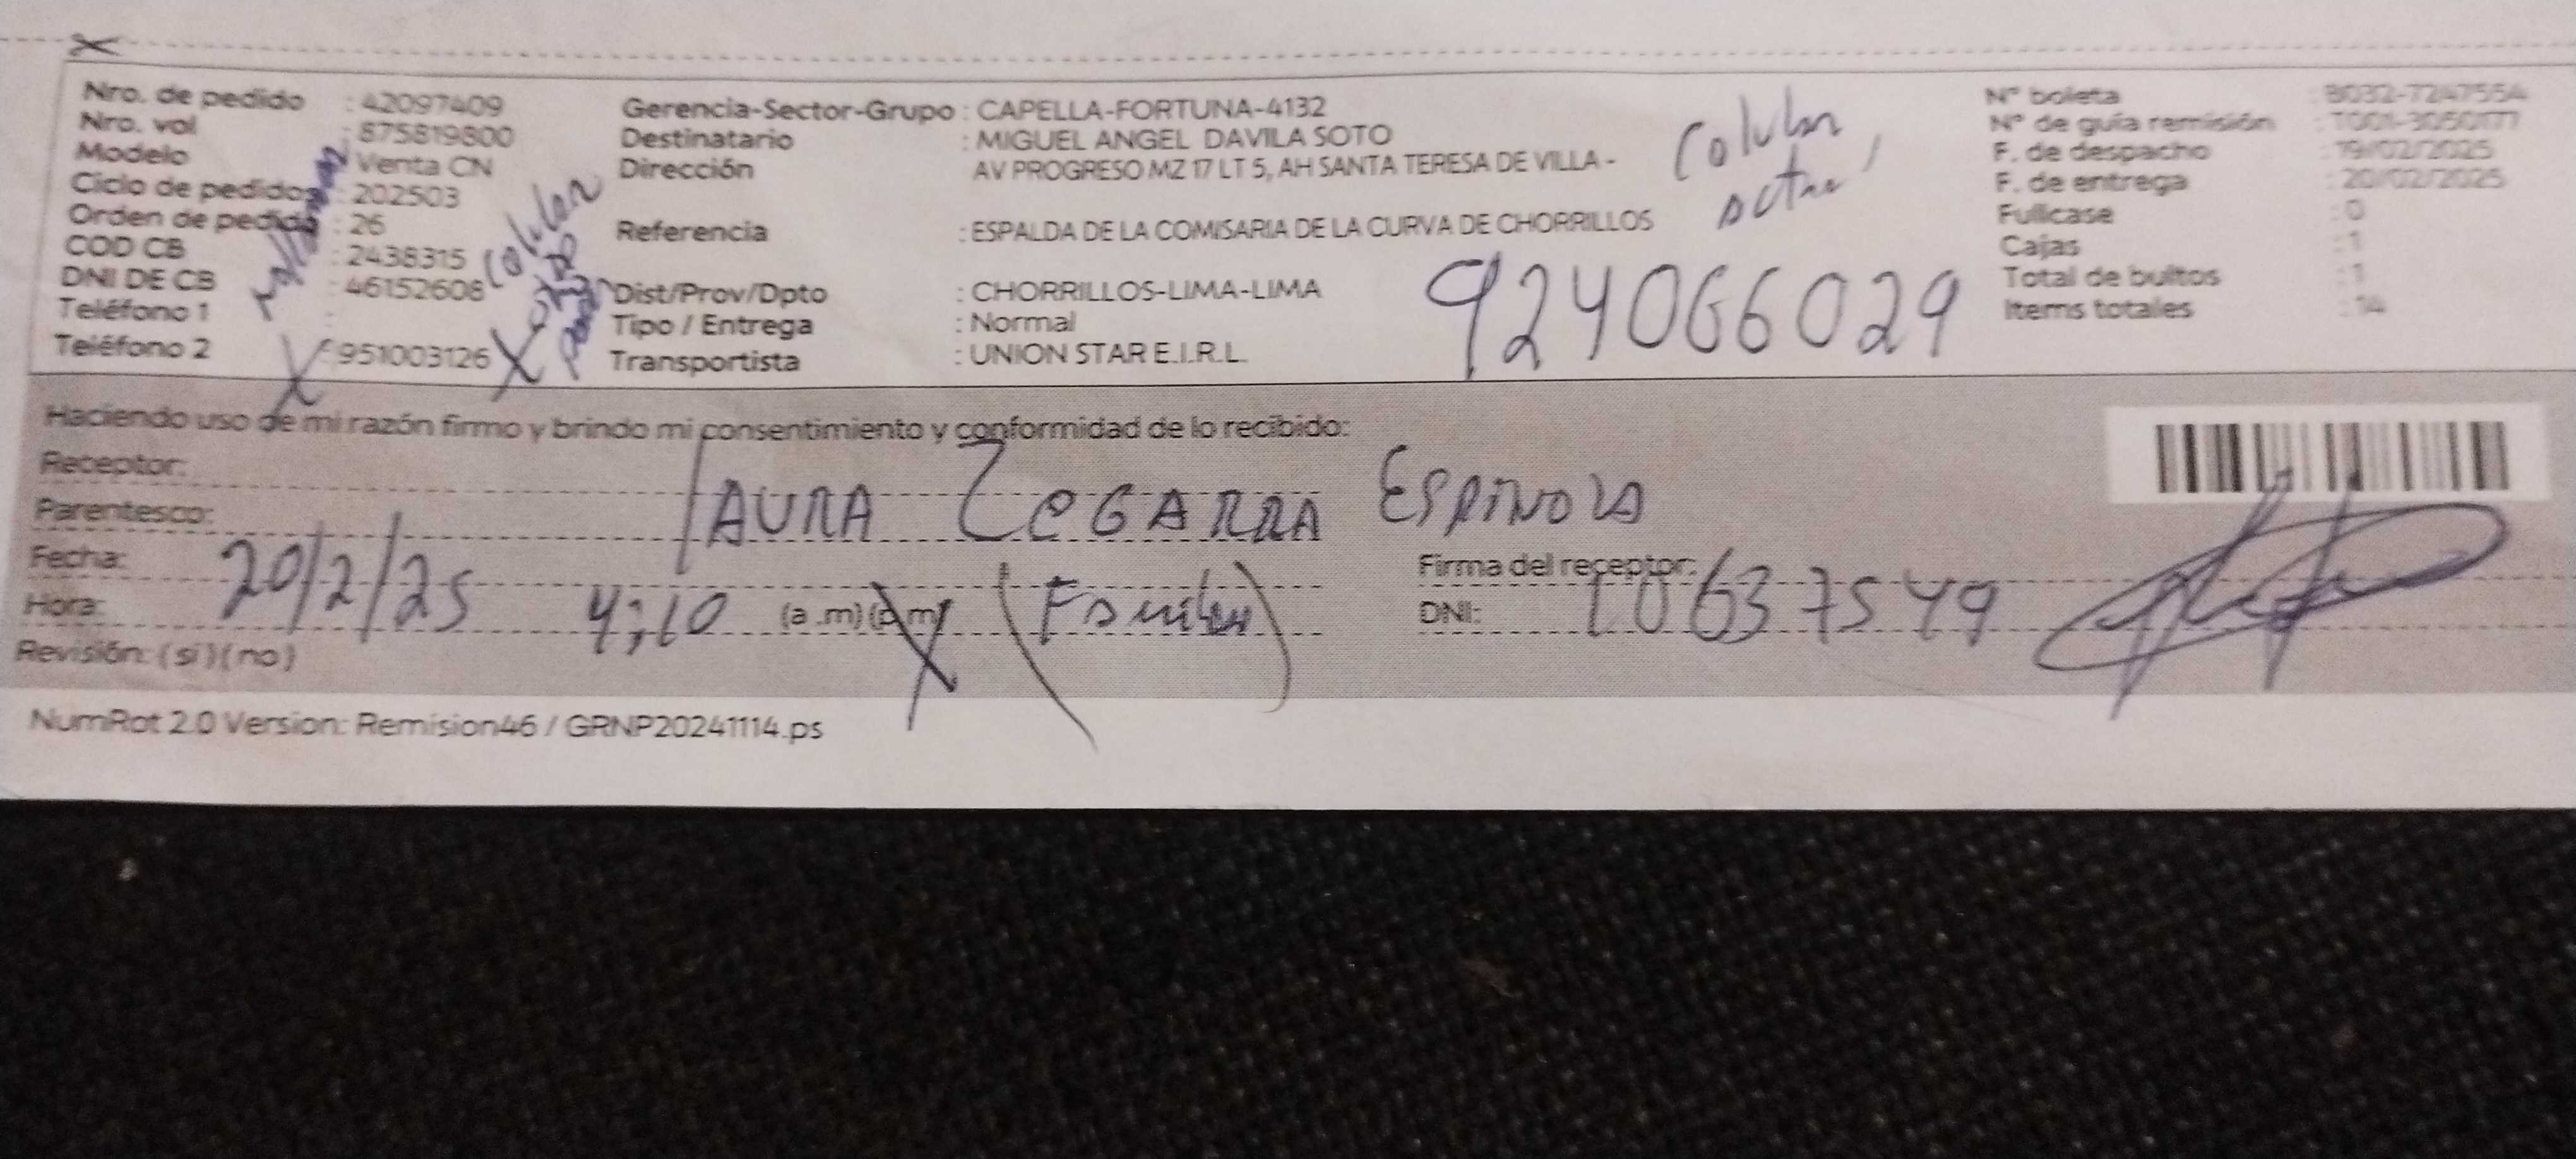 Nro. de pedido : 42097409
Nro. vol : 875819800
Modelo : Venta CN
Ciclo de pedidos : 202503
Orden de pedido : 26
COD CB : 2438315
DNI DE CB : 46152608
Teléfono 1 :
Teléfono 2 : 951003126
Celular
Gerencia-Sector-Grupo : CAPELLA-FORTUNA-4132
Destinatario : MIGUEL ANGEL DAVILA SOTO
Dirección AV PROGRESO MZ 17 LT 5, AH SANTA TERESA DE VILLA -
Referencia : ESPALDA DE LA COMISARIA DE LA CURVA DE CHORRILLOS
Dist/Prov/Dpto : CHORRILLOS-LIMA-LIMA
Tipo / Entrega : Normal
Transportista : UNION STAR E.I.R.L.
Celular
924066029
N° boleta : B032-7247554
N° de guía remisión : T001-3050177
F. de despacho : 19/02/2025
F. de entrega : 20/02/2025
Fullcase : 0
Cajas : 1
Total de bultos : 1
Items totales : 14
Haciendo uso de mi razón firmo y brindo mi consentimiento y conformidad de lo recibido:
Receptor:
LAURA ZEGARRA ESPINOZA
Parentesco:
Fecha: 20/2/25
Firma del receptor:
Hora: 4:10 (a .m) (p m) (Familia)
DNI: 10637549
Revisión: (si) (no)
NumRot 2.0 Version: Remision46 / GRNP20241114.ps